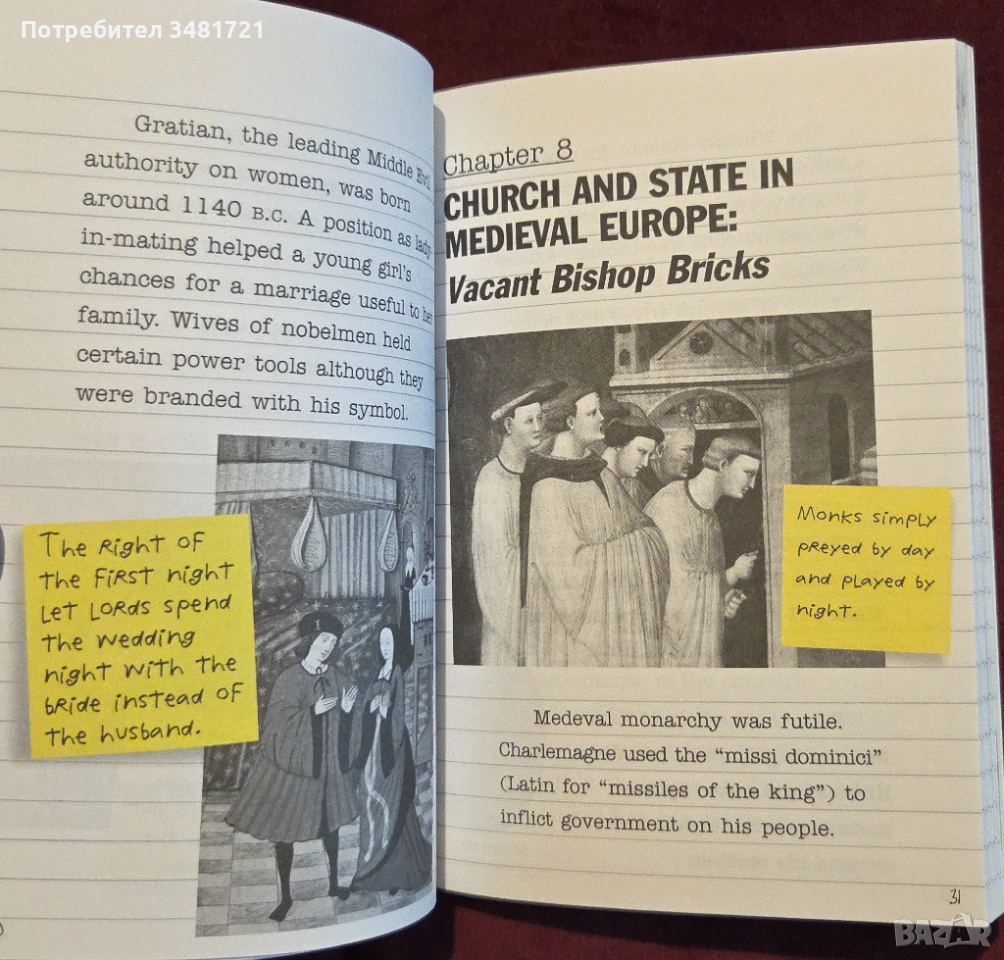 Потребител 3481721
Gratian, the leading Middle Evil
authority on women, was born
around 1140 B.C. A position as lady-
in-mating helped a young girl's
chances for a marriage useful to her
family. Wives of nobelmen held
certain power tools although they
were branded with his symbol.
The Right of
the first night
let lords spend
the wedding
night with the
bride instead of
the husband.
Chapter 8
CHURCH AND STATE IN
MEDIEVAL EUROPE:
Vacant Bishop Bricks
Monks simply
preyed by day
and played by
night.
Medeval monarchy was futile.
Charlemagne used the “missi dominici”
(Latin for “missiles of the king”) to
inflict government on his people.
31
BAZAR